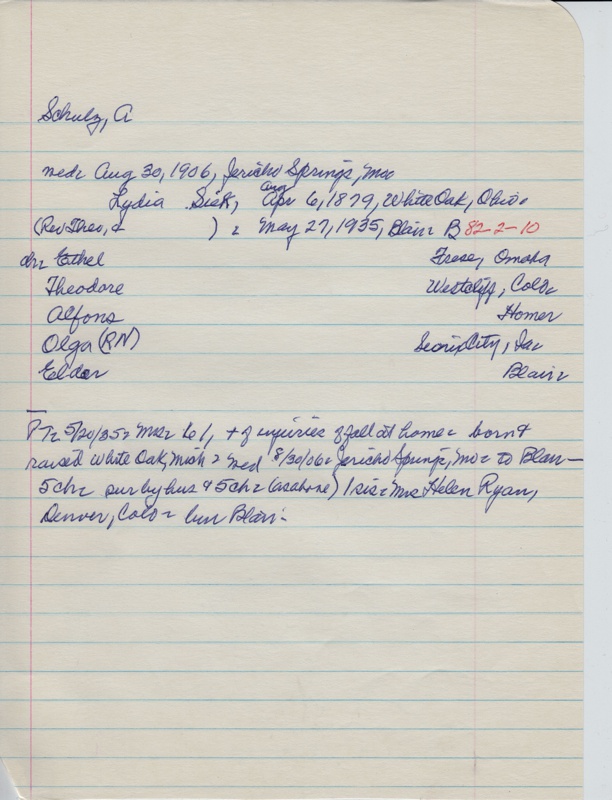 Schulz, A
med: Aug 30, 1906, Jericho Springs, Mo:
Aug
Lydia Sick, Apr 6, 1879, White Oak, Ohio:
(Rev Theo, & ) : May 27, 1935, Blair: B 82-2-10
ch: Ethel Frese, Omaha
Theodore Westcliff, Colo:
Alfons Homer
Olga (RN) Sioux City, Ia:
Eldor Blair:
T: 5/30/35: Mrs: 61, + of injuries of fall at home: born &
raised White Oak, Mich: med 8/30/06: Jericho Springs, Mo: to Blair—
5ch: sur by hus & 5ch: (as above) 1 sis: Mrs Helen Ryan,
Denver, Colo: bur Blair: